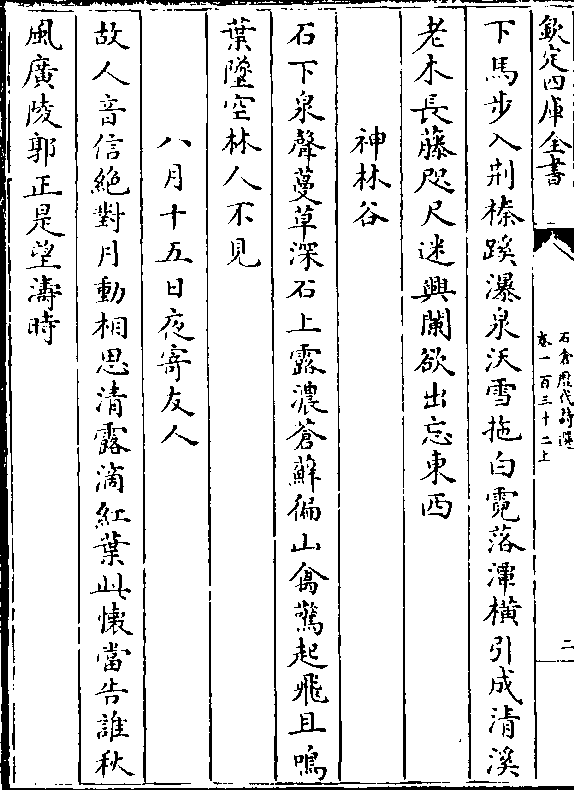 欽定四庫全書
石倉歷代詩選
卷一百三十二上
二
下馬步入荆榛蹊瀑泉沃雪拖白霓落潭橫引成清溪
老木長藤咫尺迷興闌欲出忘東西
神林谷
石下泉聲蔓草深石上露濃蒼蘚徧山禽驚起飛且鳴
葉墜空林人不見
八月十五日夜寄友人
故人音信絶對月動相思清露滴紅葉此懷當告誰秋
風廣陵郭正是望濤時